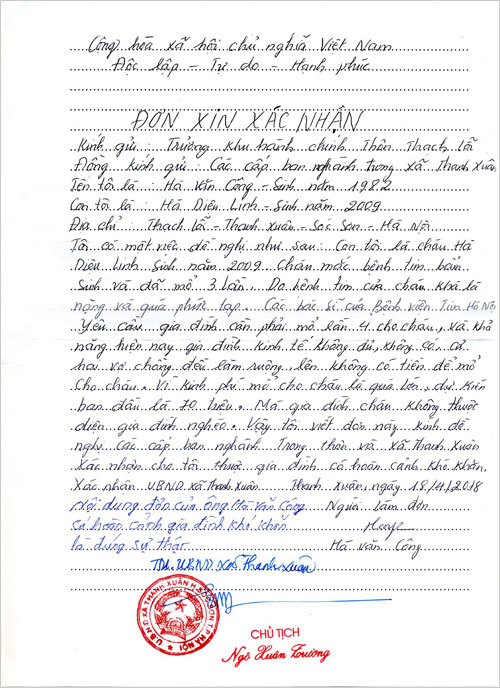 Cộng hòa xã hội chủ nghĩa Việt Nam
Độc lập - Tự do - Hạnh phúc
ĐƠN XIN XÁC NHẬN
Kính gửi : Trưởng khu hành chính Thôn Thạch lỗi
Đồng kính gửi : Các cấp ban nghành trong xã Thanh Xuân
Tên tôi là : Hà Văn Công - Sinh năm 1982
Con tôi là : Hà Diệu Linh - Sinh năm 2009
Địa chỉ : Thạch lỗi - Thanh xuân - Sóc Sơn - Hà Nội
Tôi có một việc đề nghị như sau : Con tôi là cháu Hà
Diệu Linh sinh năm 2009. Cháu mắc bệnh tim bẩm
Sinh và đã mổ 3 lần. Do bệnh tim của cháu khá là
nặng và quá phức tạp. Các bác sĩ của Bệnh viện Tim Hà Nội
Yêu cầu gia đình cần phải mổ lần 4 cho cháu, và khả
năng hiện nay gia đình kinh tế không đủ, không có, cả
hai vợ chồng đều làm ruộng, lên không có tiền để mổ
cho cháu. Vì kinh phí mổ cho cháu là quá lớn, dự kiến
ban đầu là 70 triệu. Mà gia đình cháu không thuộc
diện gia đình nghèo. Vậy tôi viết đơn này kính đề
nghị các cấp ban nghành Trong thôn và xã Thanh Xuân
Xác nhận cho tôi thuộc gia đình có hoàn cảnh khó khăn.
Xác nhận U.B.N.D. xã Thanh Xuân Thanh Xuân, ngày 18/4/2018
Nội dung đơn của ông Hà Văn Công Người làm đơn
có hoàn cảnh gia đình khó khăn
là đúng sự thật Hà Văn Công
TM. U.B.N.D. xã Thanh Xuân
U.B.N.D XÃ THANH XUÂN H. SÓC SƠN T.P HÀ NỘI
CHỦ TỊCH
Ngô Xuân Trường